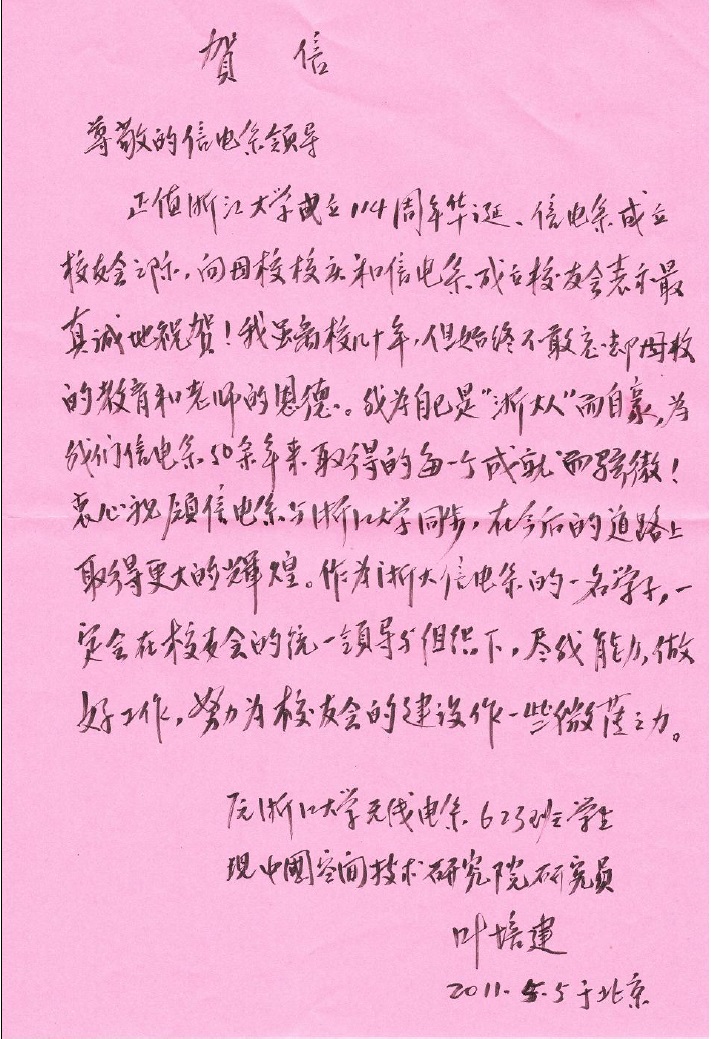 賀 信
尊敬的信电系领导
正值浙江大学成立114周年华诞、信电系成立
校友会之际，向母校校庆和信电系成立校友会表示最
真诚地祝贺！我虽离校几十年，但始终不敢忘却母校
的教育和老师的恩德。我为自己是“浙大人”而自豪，为
我们信电系50余年来取得的每一个成就而骄傲！
衷心祝愿信电系与浙江大学同步，在今后的道路上
取得更大的辉煌。作为浙大信电系的一名学子，一
定会在校友会的统一领导与组织下，尽我能力，做
好工作，努力为校友会的建设作一些微薄之力。
原浙江大学无线电系623班学生
现中國空间技术研究院研究员
叶培建
2011.5.5于北京